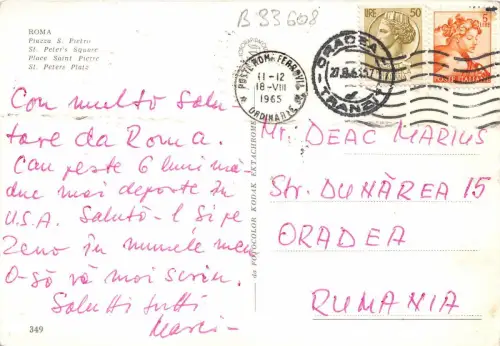 B 93668
ROMA
Piazza S. Pietro
St. Peter's Square
Place Saint Pierre
St. Peters Platz
LIRE 50
POSTE ITALIANE
POSTE ROMA FERROVIA
11-12
18-VIII
1965
ORDINARIE
ORADEA
TRANZIT
Con multo salu-
tare da Roma.
Cam peste 6 luni mă
duc mai departe în
U.S.A. Salută-l și pe
Zeno în numele meu
O-să vă mai scriu.
Salutti tutti
Mr. DEAC MARIUS
Str. DUNĂREA 15
ORADEA
RUMANIA
da FOTOCOLOR KODAK EKTACHROME
349